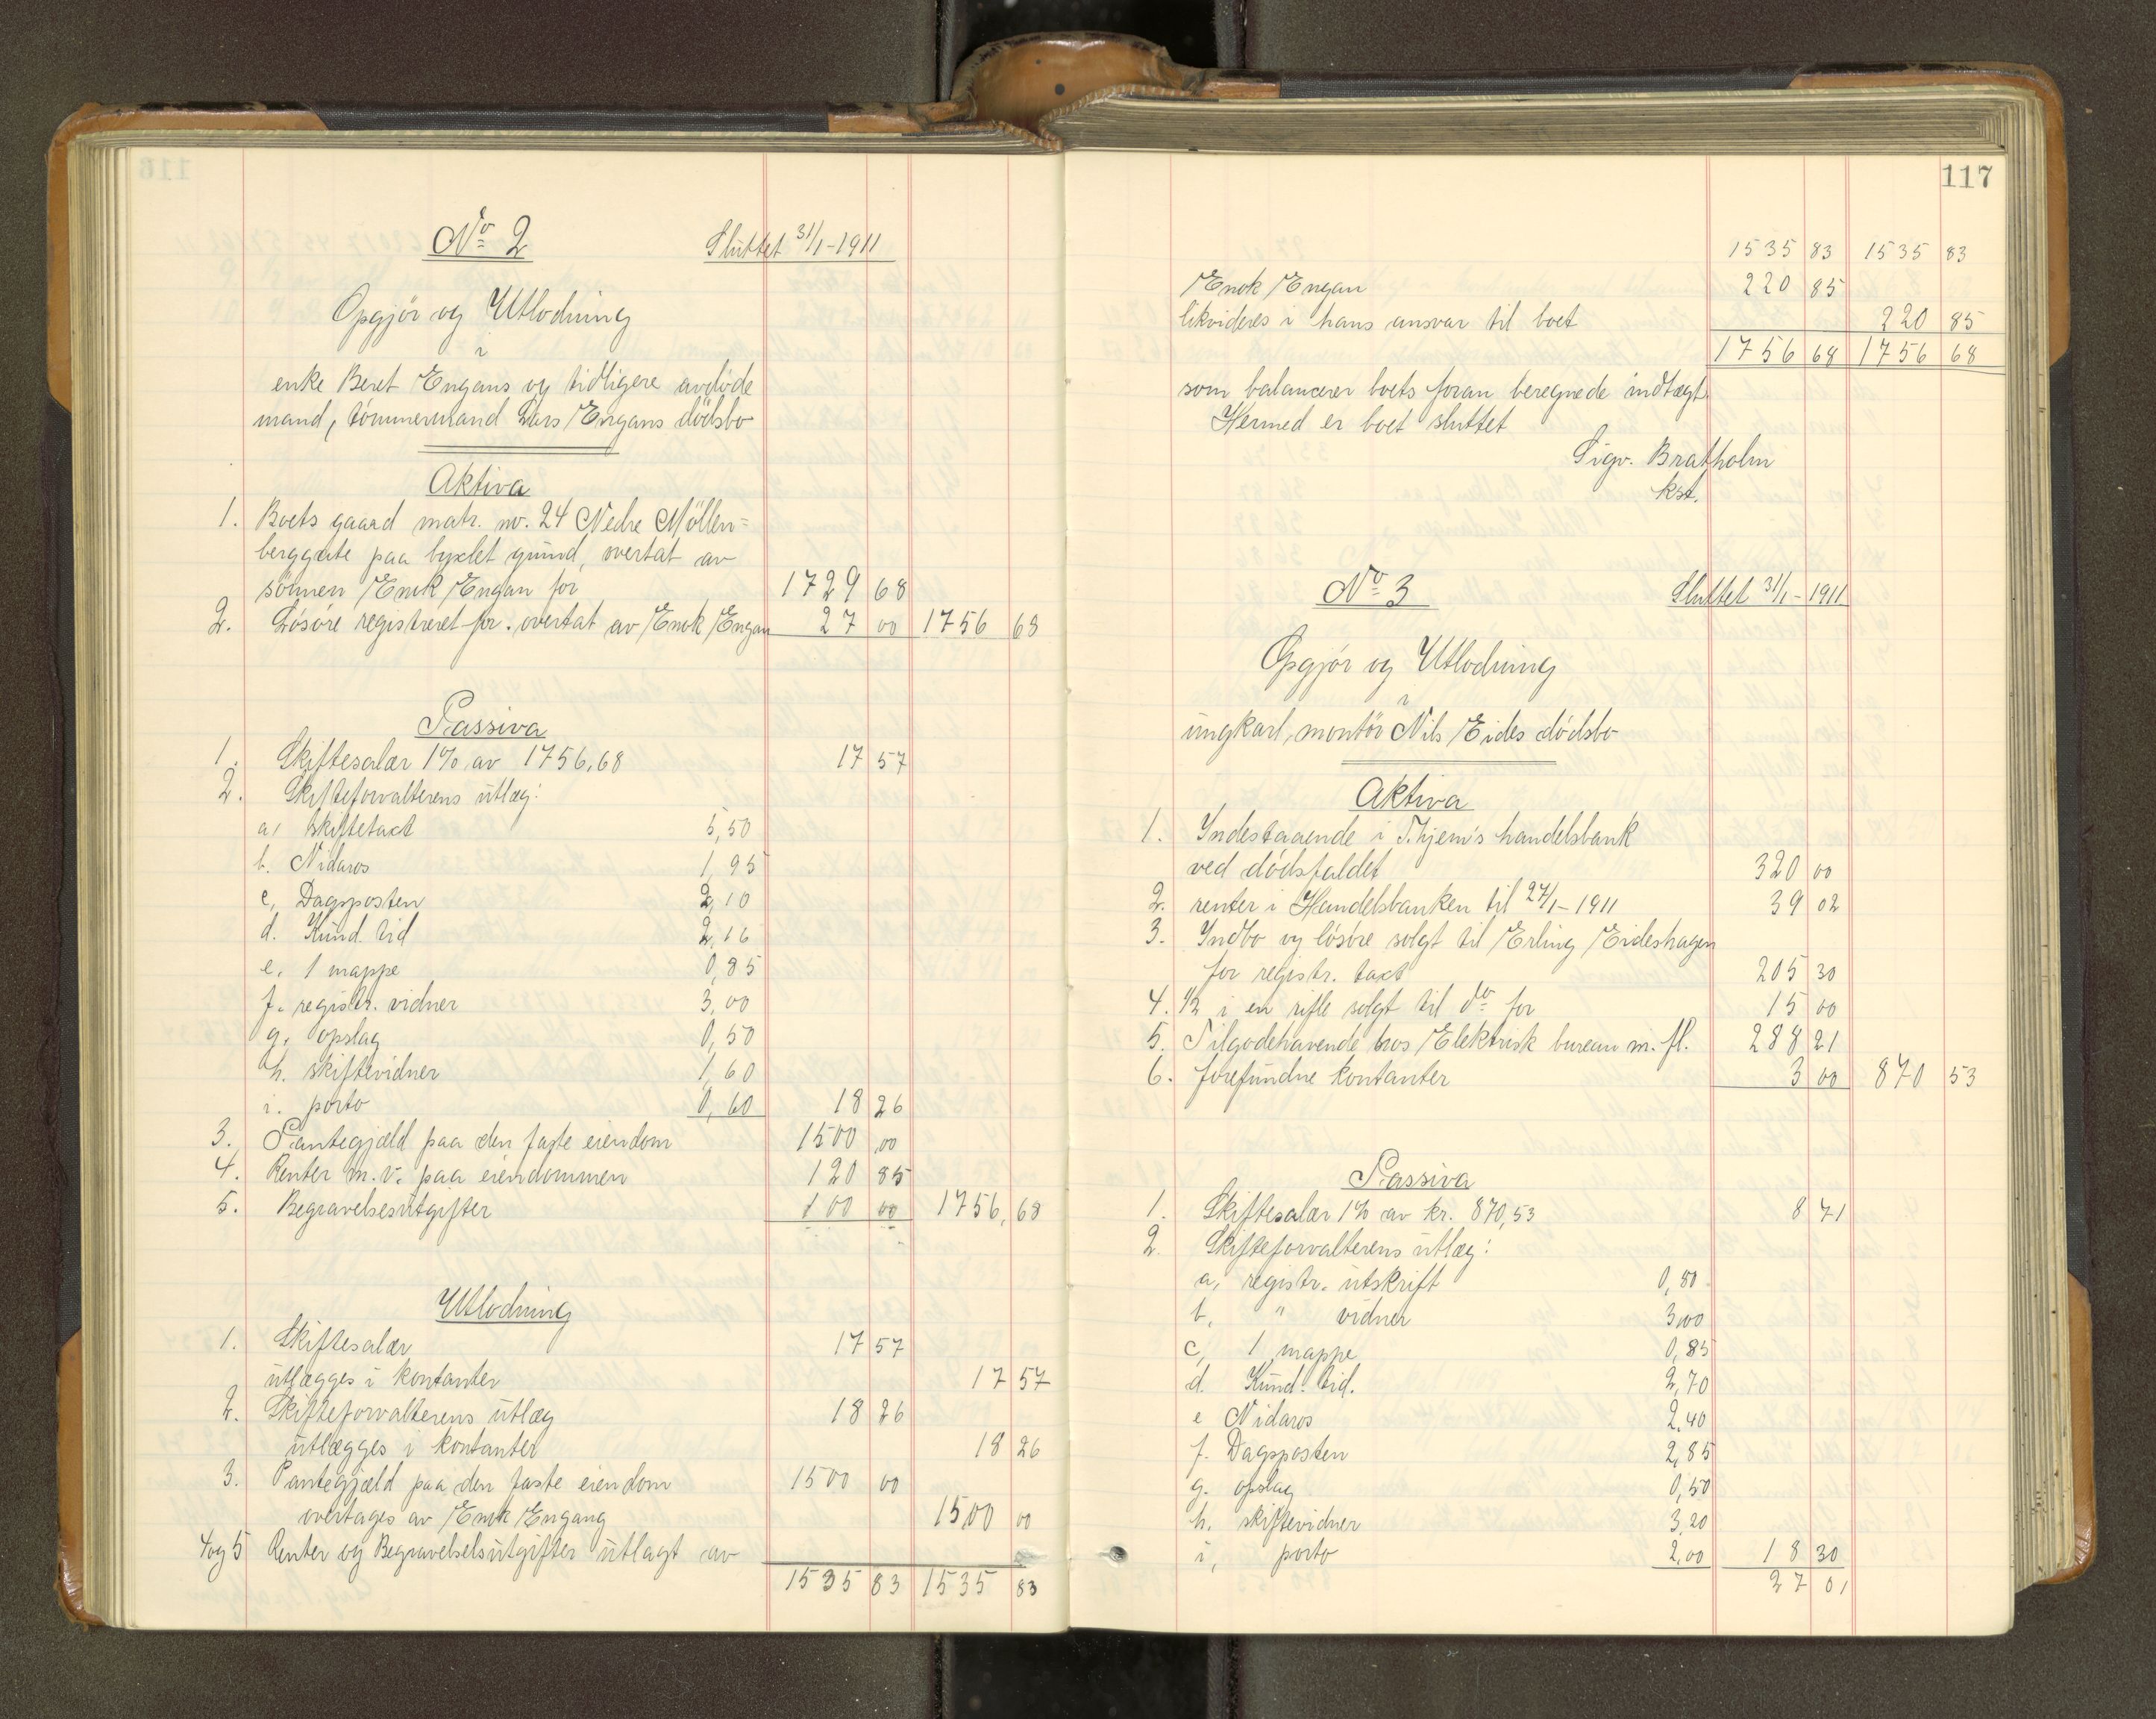 116
No 2 Sluttet 31/1-1911
Opgjör og Utlodning
i
enke Beret Engans og tidligere avdöde
mand, tömmermand Lars Engans dödsbo
Aktiva
1. Boets gaard matr. no. 24 Nedre Möllen=
berggate paa byxlet grund, overtat av
sönnen Enok Engan for 1729 68
2. Lösöre registreret for. overtat av Enok Engan 27 00 1756 68
Passiva
1. Skiftesalær 1% av 1756,68 17 57
2. Skifteforvalterens utlæg:
a, skiftetaxt 5,50
b. Nidaros 1,95
c, Dagsposten 2,10
d. Kund. tid 2,16
e. 1 mappe 0,85
f. registr. vidner 3,00
g. opslag 0,50
h. skiftevidner 1,60
i. porto 0,60 18 26
3. Pantegjæld paa den faste eiendom 1500 00
4. Renter m.v. paa eiendommen 120 85
5. Begravelsesutgifter 100 00 1756,68
Utlodning
1. Skiftesalær 17 57
utlægges i kontanter 17 57
2. Skifteforvalterens utlæg 18 26
utlægges i kontanter 18 26
3. Pantegjæld paa den faste eiendom 1500 00
overtages av Enok Engang 1500 00
4 og 5 Renter og Begravelselsutgifter utlagt av
1535 83 1535 83
117
1535 83 1535 83
Enok Engan 220 85
likvideres i hans ansvar til boet 220 85
1756 68 1756 68
som balancerer boets foran beregnede indtægt.
Hermed er boet sluttet
Sigv. Bratholm
kst.
No 3 Sluttet 31/1-1911
Opgjör og Utlodning
i
ungkarl, montör Nils Eides dödsbo
Aktiva
1. Indestaaende i T.hjem's handelsbank
ved dödsfaldet 320 00
2. renter i Handelsbanken til 27/1-1911 39 02
3. Indbo og lösöre solgt til Erling Eideshagen
for registr. taxt 205 30
4. 1/2 i en rifle solgt til do for 15 00
5. Tilgodehavende hos Elektrisk bureau m. fl. 288 21
6. forefundne kontanter 3 00 870 53
Passiva
1. Skiftesalær 1% av kr. 870,53 8 71
2. Skifteforvalterens utlæg:
a, registr. utskrift 0,80
b, " vidner 3,00
c, 1 mappe 0,85
d. Kund. tid. 2,70
e Nidaros 2,40
f. Dagsposten 2,85
g. opslag 0,50
h. skiftevidner 3,20
i, porto 2,00 18 30
27 01